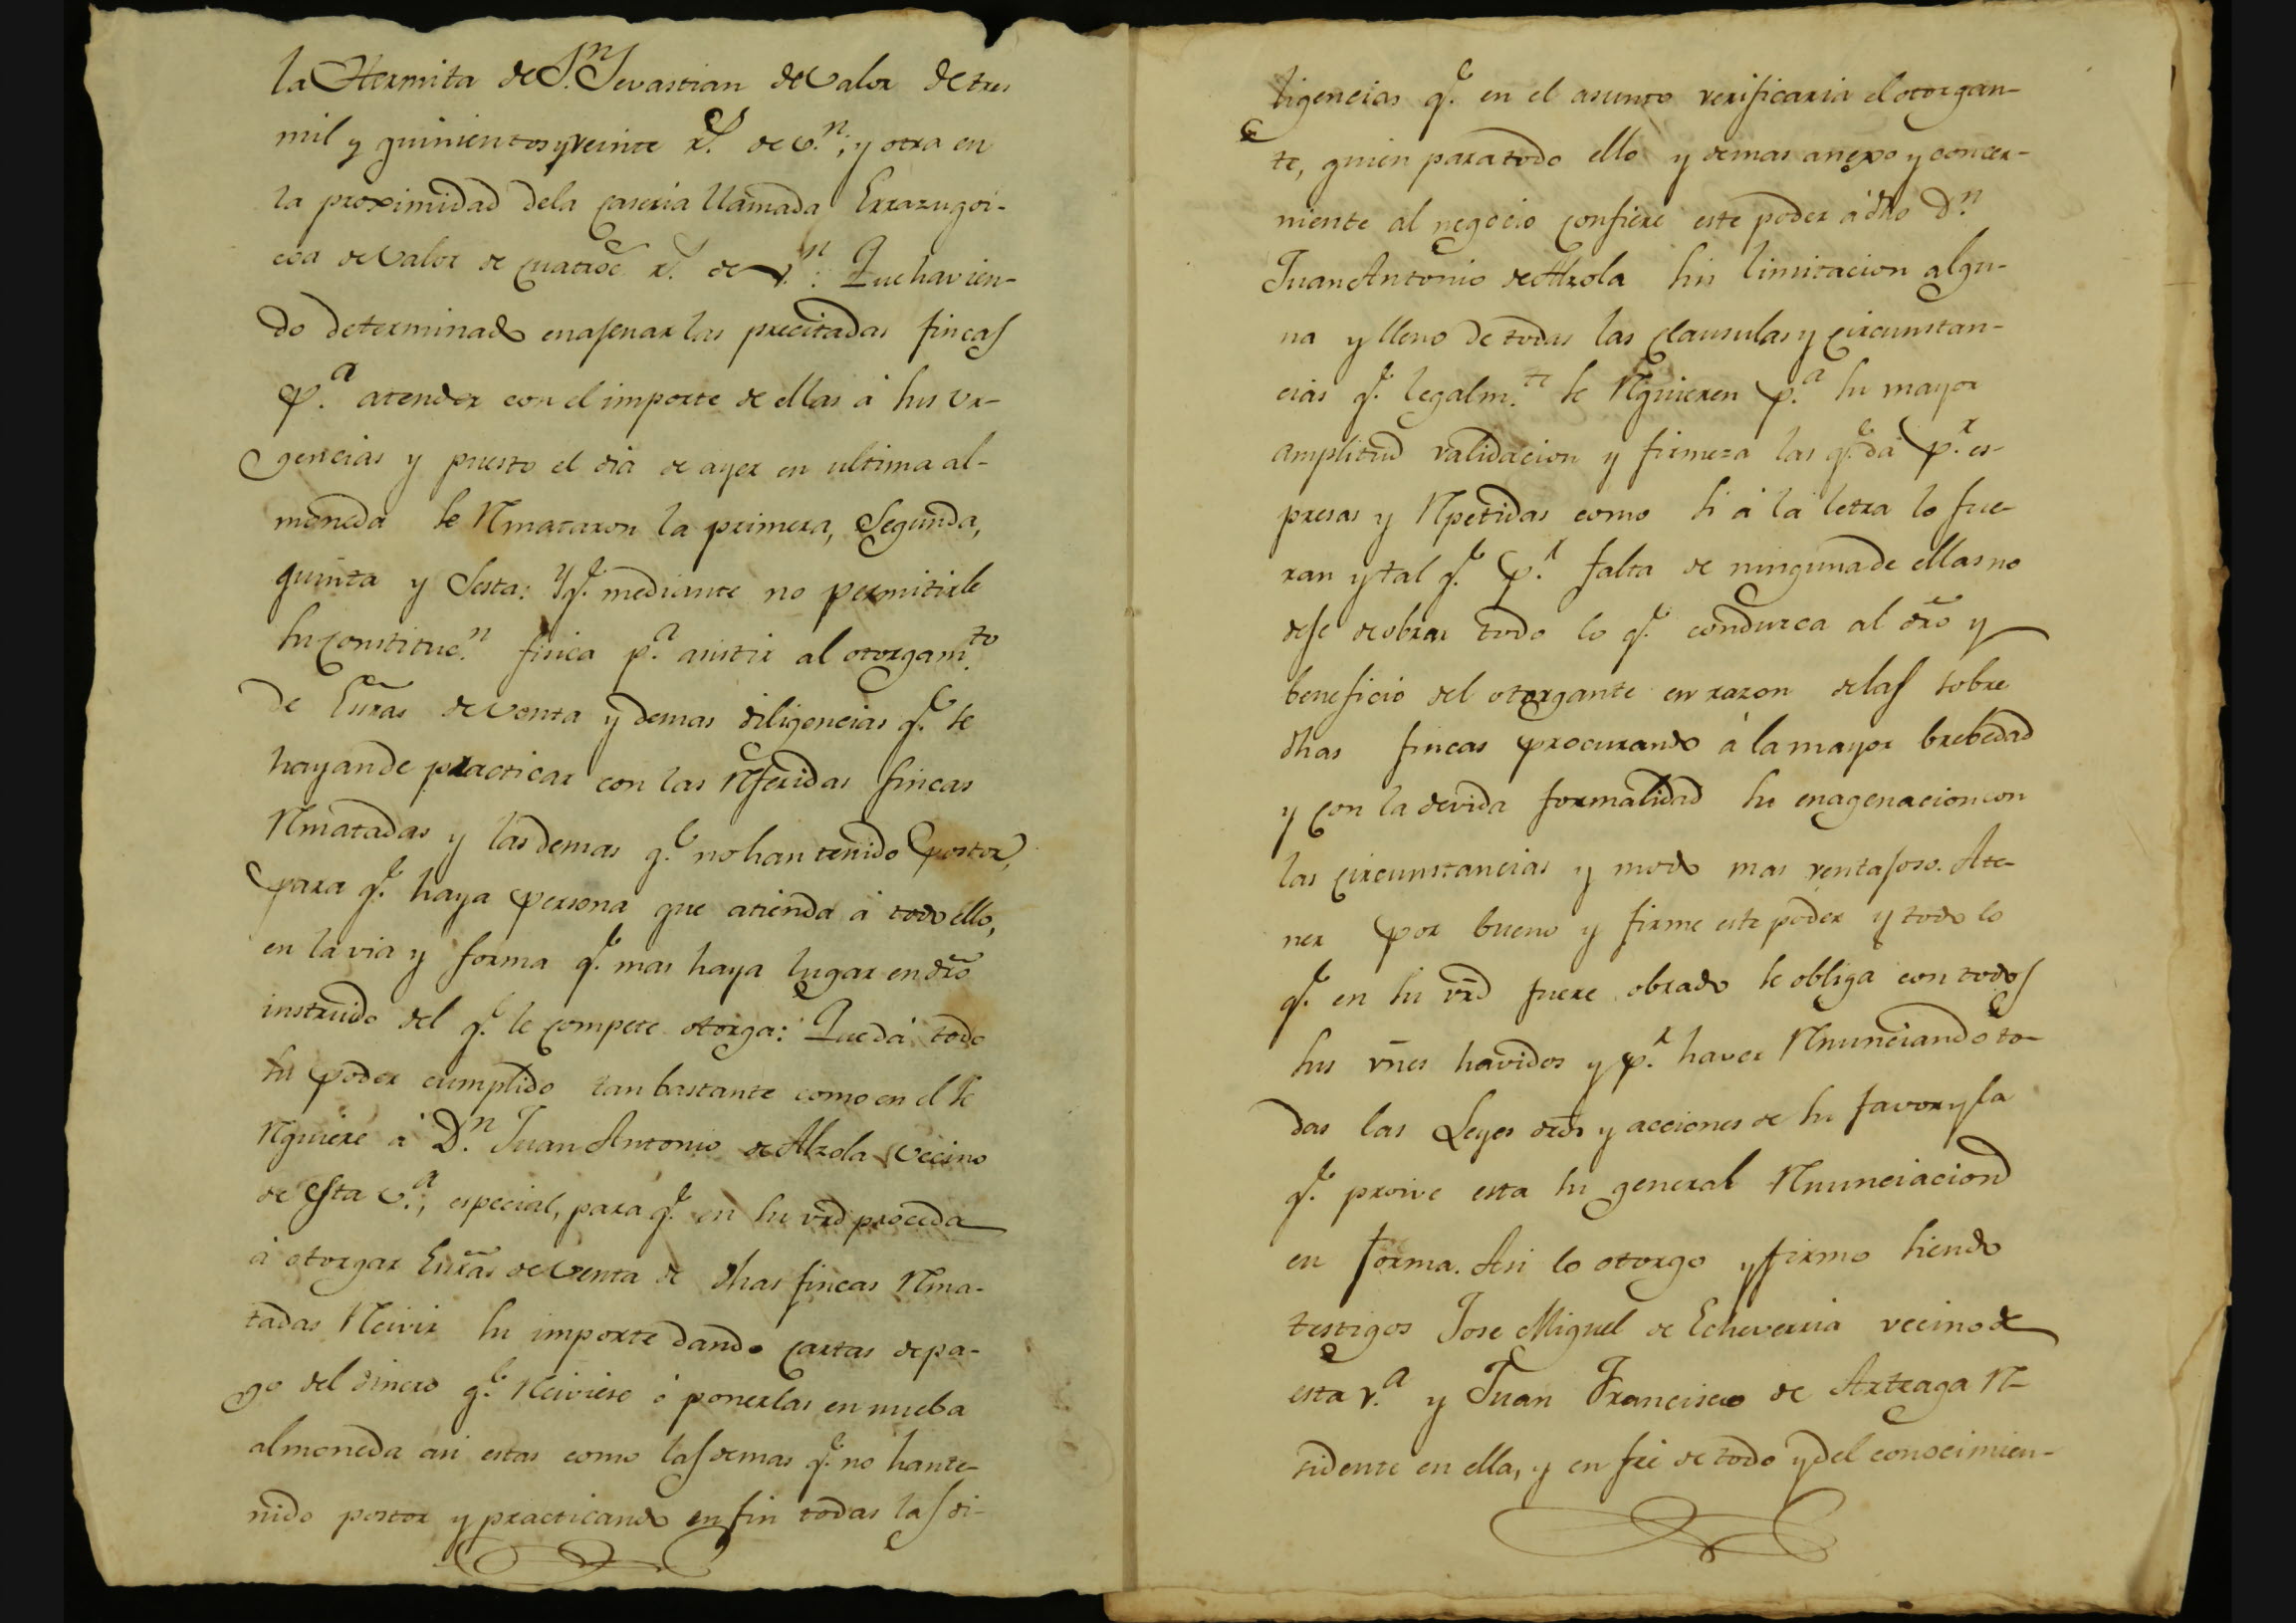 la Hermita de Sn. Sevastian de valor de tres
mil y quinientos y veinte rs. de vn.; y otra en
la proximidad dela caseria llamada Errazugoi-
coa de valor de cuatroc rs. de vn.: Que havien-
do determinado enajenar las precitadas fincas
pa. atender con el importe de ellas á sus ur-
gencias y puesto el dia de ayer en ultima al-
moneda se Rmataron la primera, Segunda,
quinta y Sesta: Y qe. mediante no permitirle
su constitucn. fisica pa. asistir al otorgamto.
de Esc̃ras de venta y demas diligencias qe. se
hayan de practicar con las Rferidas fincas
Rmatadas y las demas qe. no han tenido postor,
para qe. haya persona que atienda á todo ello,
en la via y forma qe. mas haya lugar en dr̃o
instruido del qe. le compete otorga: Que dá todo
su poder cumplido tan bastante como en el se
Rquiere á Dn. Juan Antonio de Alzola vecino
de esta va.; especial, para qe. en su vr̃d proceda
á otorgar Esc̃ras de venta de dhas fincas Rma-
tadas Rcivir su importe dando cartas de pa-
go del dinero qe. Rciviese ó ponerlas en nueba
almoneda asi estas como las demas qe. no han te-
nido postor y practicando en fin todas las di-
ligencias qe. en el asunto verificaria el otorgan-
te, quien para todo ello y demas anexo y concer-
niente al negocio confiere este poder á dho Dn.
Juan Antonio de Alzola sin limitacion algu-
na y lleno de todas las clausulas y circunstan-
cias qe. legalmte. se Rquieren pa. su mayor
amplitud validacion y firmeza las qe. da pr. es-
presas y Rpetidas como si á la letra lo fue-
ran y tal qe. pr. falta de ninguna de ellas no
deje de obrar todo lo qe. conduzca al dr̃o y
beneficio del otorgante en razon de las sobre
dhas fincas procurando á la mayor brebedad
y con la devida formalidad su enagenacion con
las circunstancias y modo mas ventajoso. A te-
ner por bueno y firme este poder y todo lo
qe. en su vr̃d fuere obrado se obliga con todos
sus vñes havidos y pr. haver Rnunciando to-
das las Leyes dr̃os y acciones de su favor y la
qe. proive esta su general Rnunciacion
en forma. Asi lo otorgo y firmo siendo
testigos Jose Miguel de Echeverria vecino de
esta va. y Juan Francisco de Arteaga R-
sidente en ella, y en fee de todo y del conocimien-